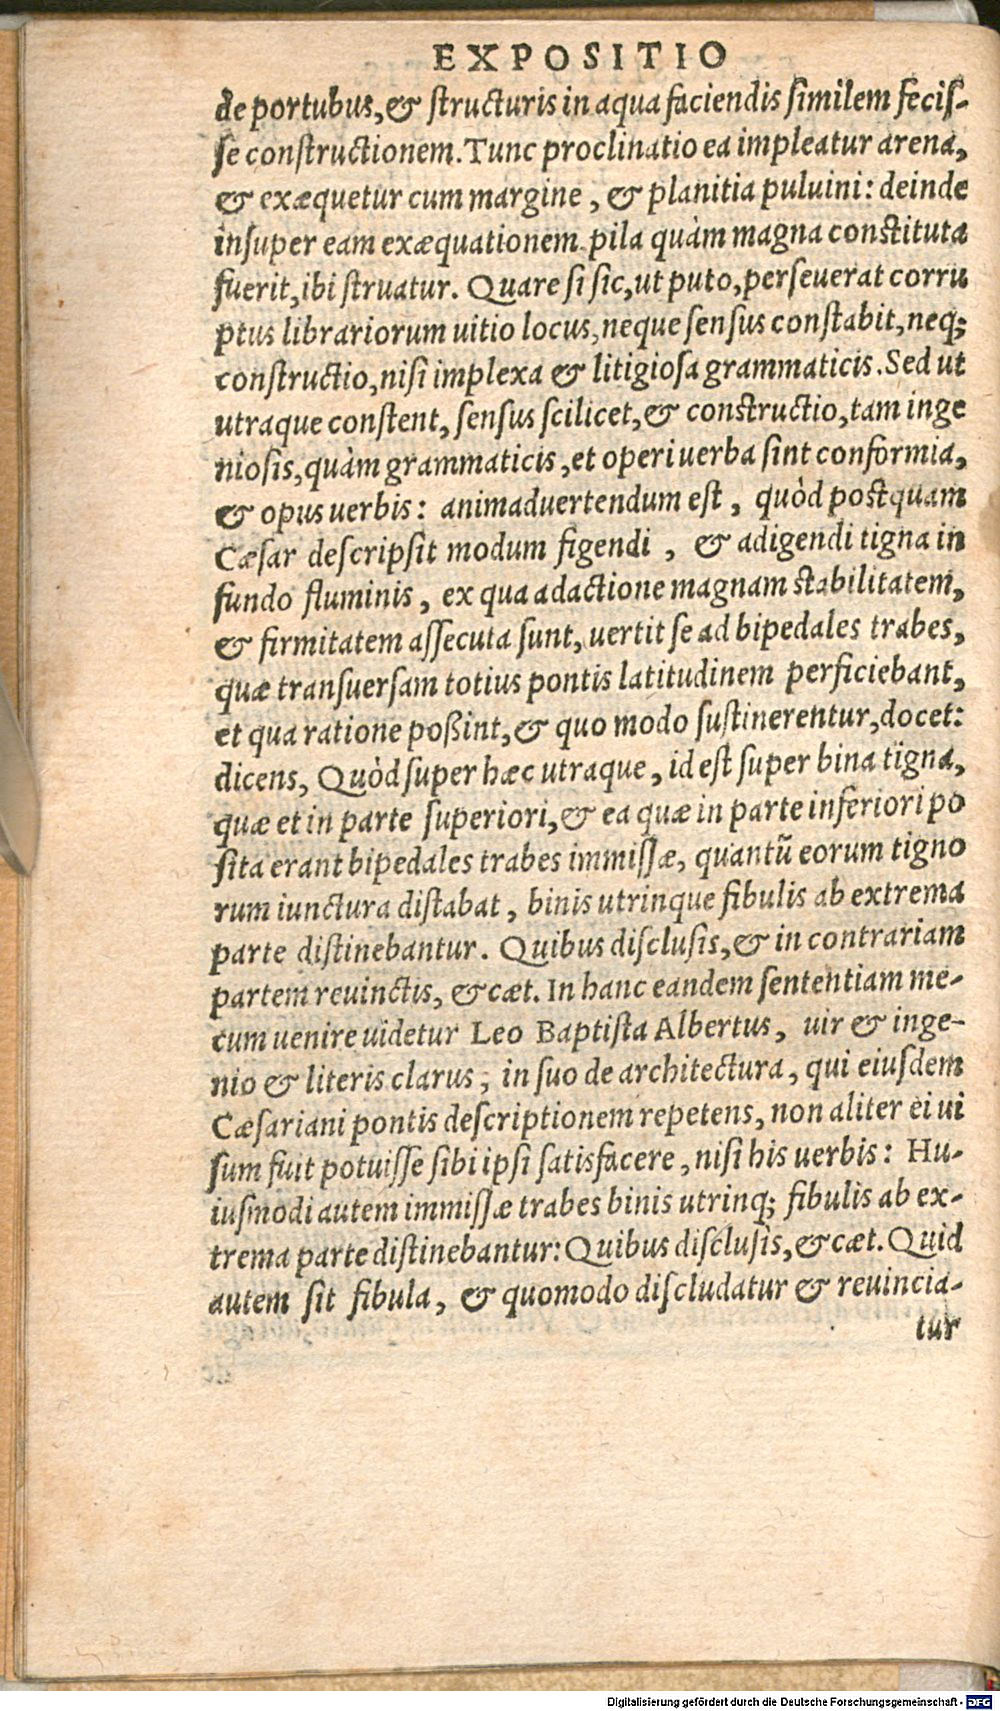 EXPOSITIO
de portubus, & structuris in aqua faciendis similem fecis-
se constructionem. Tunc proclinatio ea impleatur arena,
& exæquetur cum margine, & planitia puluini: deinde
insuper eam exæquationem pila quàm magna constituta
fuerit, ibi struatur. Quare si sic, ut puto, perseuerat corru
ptus librariorum uitio locus, neque sensus constabit, neq;
constructio, nisi implexa & litigiosa grammaticis. Sed ut
utraque constent, sensus scilicet, & constructio, tam inge
niosis, quàm grammaticis, et operi uerba sint conformia,
& opus uerbis: animaduertendum est, quòd postquam
Cæsar descripsit modum figendi, & adigendi tigna in
fundo fluminis, ex qua adactione magnam stabilitatem,
& firmitatem assecuta sunt, uertit se ad bipedales trabes,
quæ transuersam totius pontis latitudinem perficiebant,
et qua ratione poßint, & quo modo sustinerentur, docet:
dicens, Quòd super hæc utraque, id est super bina tigna,
quæ et in parte superiori, & ea quæ in parte inferiori po
sita erant bipedales trabes immissæ, quantũ eorum tigno
rum iunctura distabat, binis utrinque fibulis ab extrema
parte distinebantur. Quibus disclusis, & in contrariam
partem reuinctis, & cæt. In hanc eandem sententiam me-
cum uenire uidetur Leo Baptista Albertus, uir & inge-
nio & literis clarus, in suo de architectura, qui eiusdem
Cæsariani pontis descriptionem repetens, non aliter ei ui
sum fuit potuisse sibi ipsi satisfacere, nisi his uerbis: Hu-
iusmodi autem immissæ trabes binis utrinq; fibulis ab ex-
trema parte distinebantur: Quibus disclusis, & cæt. Quid
autem sit fibula, & quomodo discludatur & reuincia-
tur
Digitalisierung gefördert durch die Deutsche Forschungsgemeinschaft - DFG